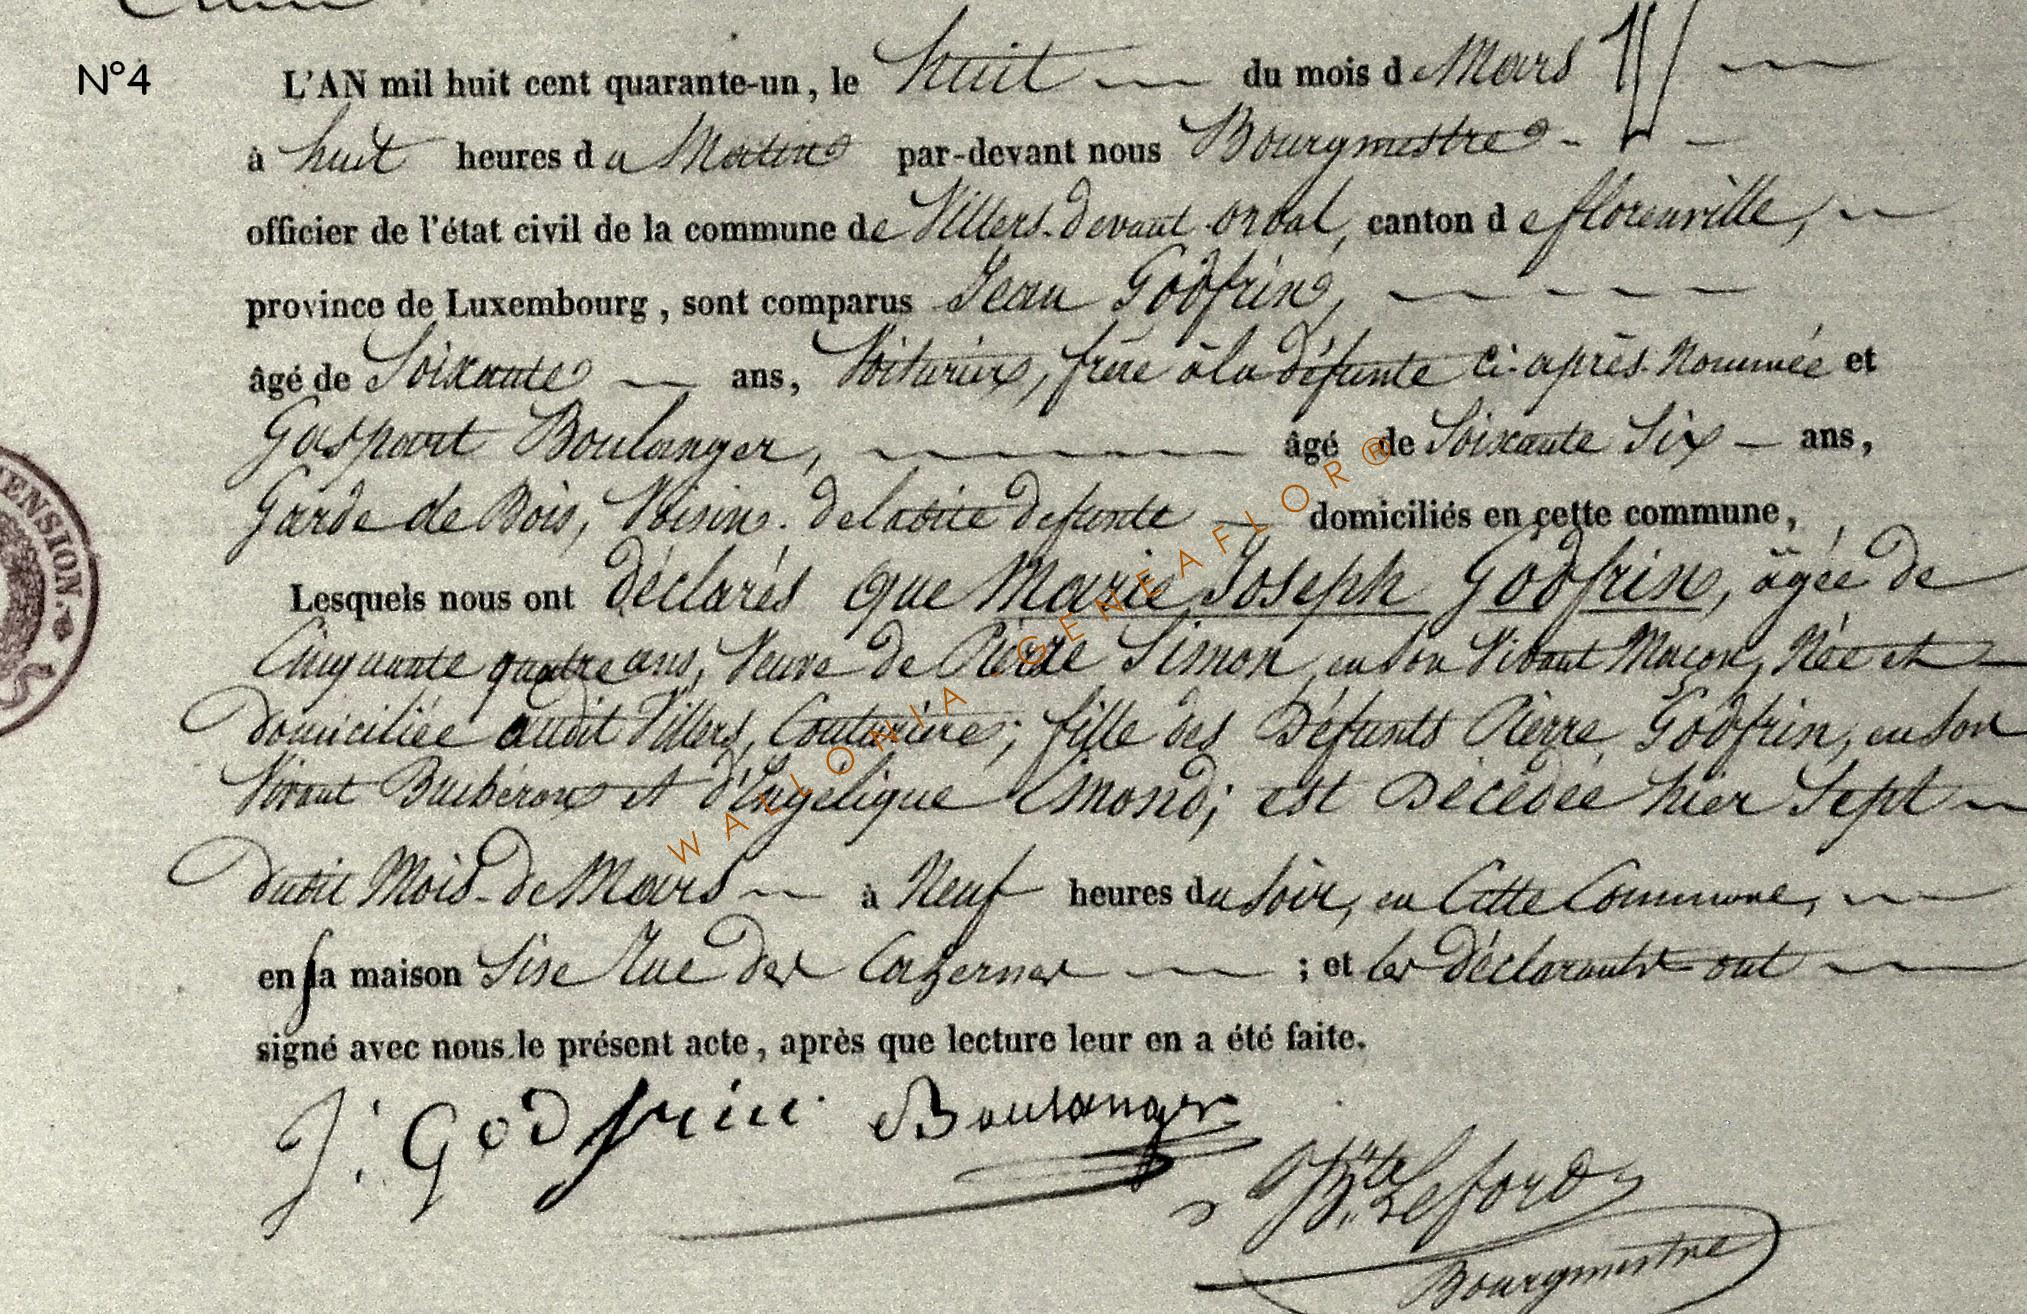 N°4
L'AN mil huit cent quarante-un, le huit du mois de Mars
à huit heures du Matin par-devant nous Bourgmestre
officier de l'état civil de la commune de Villers-devant-orval, canton de florenville,
province de Luxembourg, sont comparus Jean Godfrin,
âgé de Soixante ans, Voiturier, frère à la défunte ci-après-Nommée et
Gaspart Boulanger, âgé de Soixante Six ans,
Garde de Bois, Voisin. de ladite defunte domiciliés en cette commune,
Lesquels nous ont déclarés que Marie Joseph Godfrin, âgée de
Cinquante quatre ans, Veuve de Pierre Simon, en son Vivant Maçon, Née et
domiciliée audit Villers, Couturière; fille des Défunts Pierre Godfrin, en son
Vivant et d'Angélique Emond; est Décédée hier Sept
dudit Mois-de Mars à Neuf heures du Soir, en Cette Commune,
en sa maison Sise Rue des Cazernes ; et les déclarants ont
signé avec nous le présent acte, après que lecture leur en a été faite.
J. Godfrin Boulanger
Bourgmestre
WALLONIA GENEAFLOR®
ENSION.